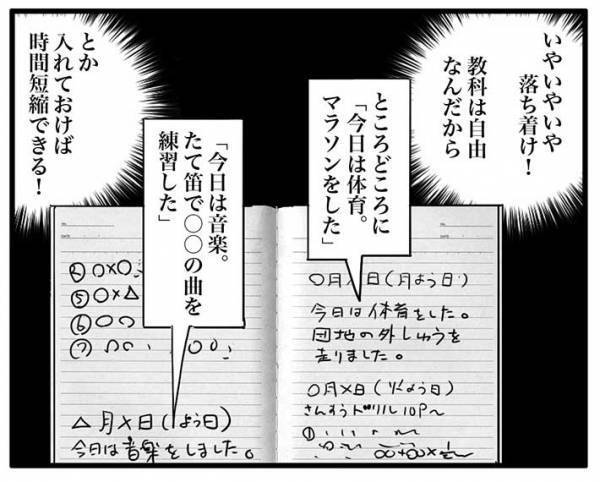 いやいやいや
落ち着け!
教科は自由
なんだから
ところどころに
「今日は体育。
マラソンをした」
「今日は音楽。
たて笛で〇〇の曲を
練習した」
とか
入れておけば
時間短縮できる!
〇月〤日(月よう日)
今日は体育をした。
団地の外しゅうを
走りました。
〇月×日(火よう日)
さんすうドリル10P〜
①
④〇×〇
⑤〇×△
⑥〇〇
⑦
△月×日(よう日)
今日は音楽をしました。